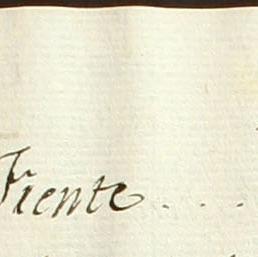 Fiente . . . .